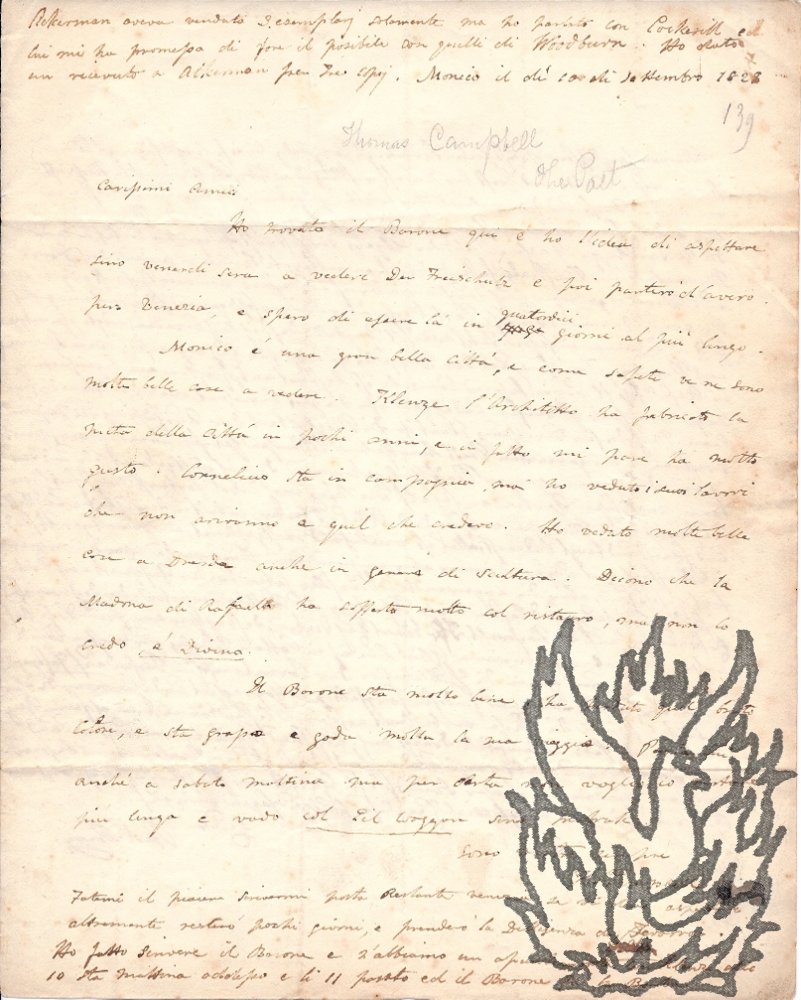 Ackerman aveva venduto 3 esemplarj solamente ma ho parlato con Cockerill ed
lui mi ha promessa di fare il posibile con quelli di Woodburn. Ho dato
un ricevuto a Akerman per tre copj. Monico il di 10 di Settembro 1828
139
Thomas Campbell
the Poet
Carissimi Amici
Ho trovato il Barone qui e ho l'idea di aspettare
sino venerdi sera a vedere Der Freischutz e poi partiro d'avero
per Venezia, e spero di essere là in quatordici giorni al più lungo.
Monico é una gran bella Città, e come sapete ve ne sono
molte belle cose a vedere. Klenze l'Architetto ha fabricato la
metà della Città in pochi anni, e in fatto mi pare ha molto
gusto. Cornelius sta in campagnia, ma ho veduto i suoi lavori
che non arivanno a quel che credevo. Ho veduto molte belle
cose a Dresda anche in genere di Scultura. Dicono che la
Madona di Rafaelle ha sofferto molto col ristauro, ma non lo
credo é Divina.
Il Barone sta molto bene, ha quel brutto
Colore, e sta grasso e gode molto la sua
anche a sabato mattina ma per non voglio
più lungo e vado col Eil Waggon
Sono
Fatemi il piacere scrivermi posta Restante Venezia
altramente resterò pochi giorni, e prenderò la Diligenza
Ho fatto scrivere il Barone e s'abbiamo un
10 sta mattina adesso e li 11 passato ed il Barone